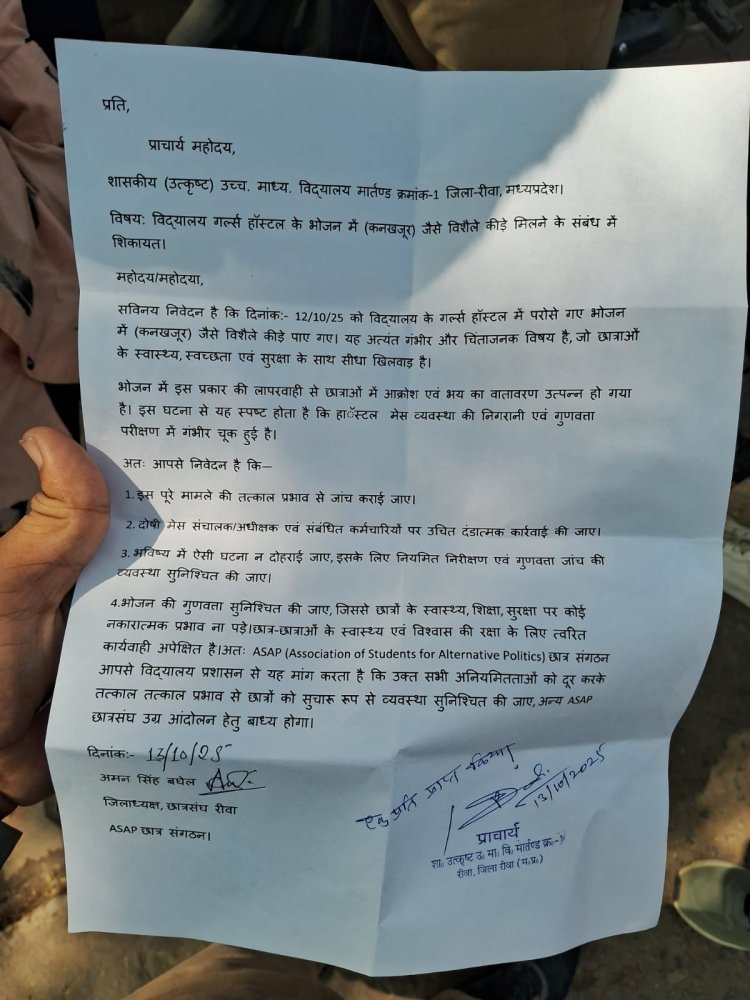 प्रति,
प्राचार्य महोदय,
शासकीय (उत्कृष्ट) उच्च. माध्य. विद्यालय मार्तण्ड क्रमांक-1 जिला-रीवा, मध्यप्रदेश।
विषय: विद्यालय गर्ल्स हॉस्टल के भोजन में (कनखजूर) जैसे विशैले कीड़े मिलने के संबंध में
शिकायत।
महोदय/महोदया,
सविनय निवेदन है कि दिनांक:- 12/10/25 को विद्यालय के गर्ल्स हॉस्टल में परोसे गए भोजन
में (कनखजूर) जैसे विशैले कीड़े पाए गए। यह अत्यंत गंभीर और चिंताजनक विषय है, जो छात्राओं
के स्वास्थ्य, स्वच्छता एवं सुरक्षा के साथ सीधा खिलवाड़ है।
भोजन में इस प्रकार की लापरवाही से छात्राओं में आक्रोश एवं भय का वातावरण उत्पन्न हो गया
है। इस घटना से यह स्पष्ट होता है कि हाॅस्टल मेस व्यवस्था की निगरानी एवं गुणवत्ता
परीक्षण में गंभीर चूक हुई है।
अतः आपसे निवेदन है कि—
1. इस पूरे मामले की तत्काल प्रभाव से जांच कराई जाए।
2. दोषी मेस संचालक/अधीक्षक एवं संबंधित कर्मचारियों पर उचित दंडात्मक कार्रवाई की जाए।
3. भविष्य में ऐसी घटना न दोहराई जाए, इसके लिए नियमित निरीक्षण एवं गुणवत्ता जांच की
व्यवस्था सुनिश्चित की जाए।
4.भोजन की गुणवत्ता सुनिश्चित की जाए, जिससे छात्रों के स्वास्थ्य, शिक्षा, सुरक्षा पर कोई
नकारात्मक प्रभाव ना पड़े।छात्र-छात्राओं के स्वास्थ्य एवं विश्वास की रक्षा के लिए त्वरित
कार्यवाही अपेक्षित है।अतः ASAP (Association of Students for Alternative Politics) छात्र संगठन
आपसे विद्यालय प्रशासन से यह मांग करता है कि उक्त सभी अनियमितताओं को दूर करके
तत्काल तत्काल प्रभाव से छात्रों को सुचारू रूप से व्यवस्था सुनिश्चित की जाए, अन्य ASAP
छात्रसंघ उग्र आंदोलन हेतु बाध्य होगा।
दिनांक:- 13/10/25
अमन सिंह बघेल
जिलाध्यक्ष, छात्रसंघ रीवा
ASAP छात्र संगठन।
एक प्रति प्राप्त किया
13/10/2025
प्राचार्य
शा० उत्कृष्ट उ० मा० वि० मार्तण्ड क्र०-1
रीवा, जिला रीवा (म०प्र०)